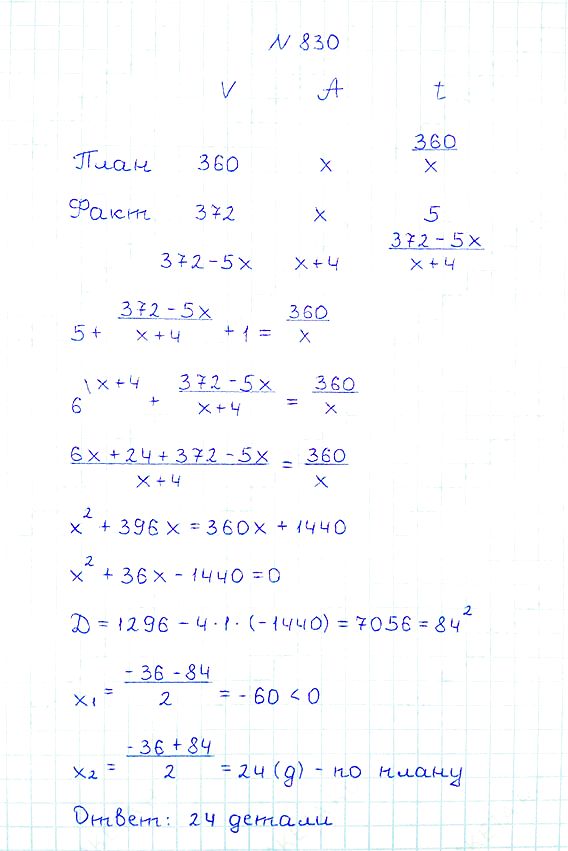 N 830
V A t
План 360 x 360/x
Факт 372 x 5
372-5x x+4 (372-5x)/(x+4)
5 + (372-5x)/(x+4) + 1 = 360/x
6 \x+4 + (372-5x)/(x+4) = 360/x
(6x+24+372-5x)/(x+4) = 360/x
x² + 396x = 360x + 1440
x² + 36x - 1440 = 0
D = 1296 - 4·1·(-1440) = 7056 = 84²
x₁ = (-36-84)/2 = -60 < 0
x₂ = (-36+84)/2 = 24 (д) - по плану
Ответ: 24 детали